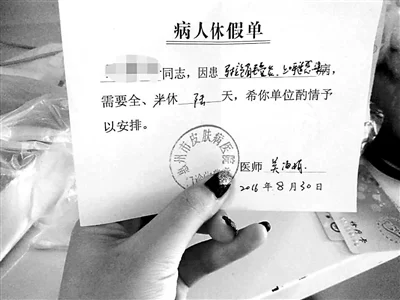 病人休假单
同志，因患病，
需要全、半休 陆 天，希你单位酌情予
以安排。
惠州市皮肤病医院
医师 吴
2016年8月30日